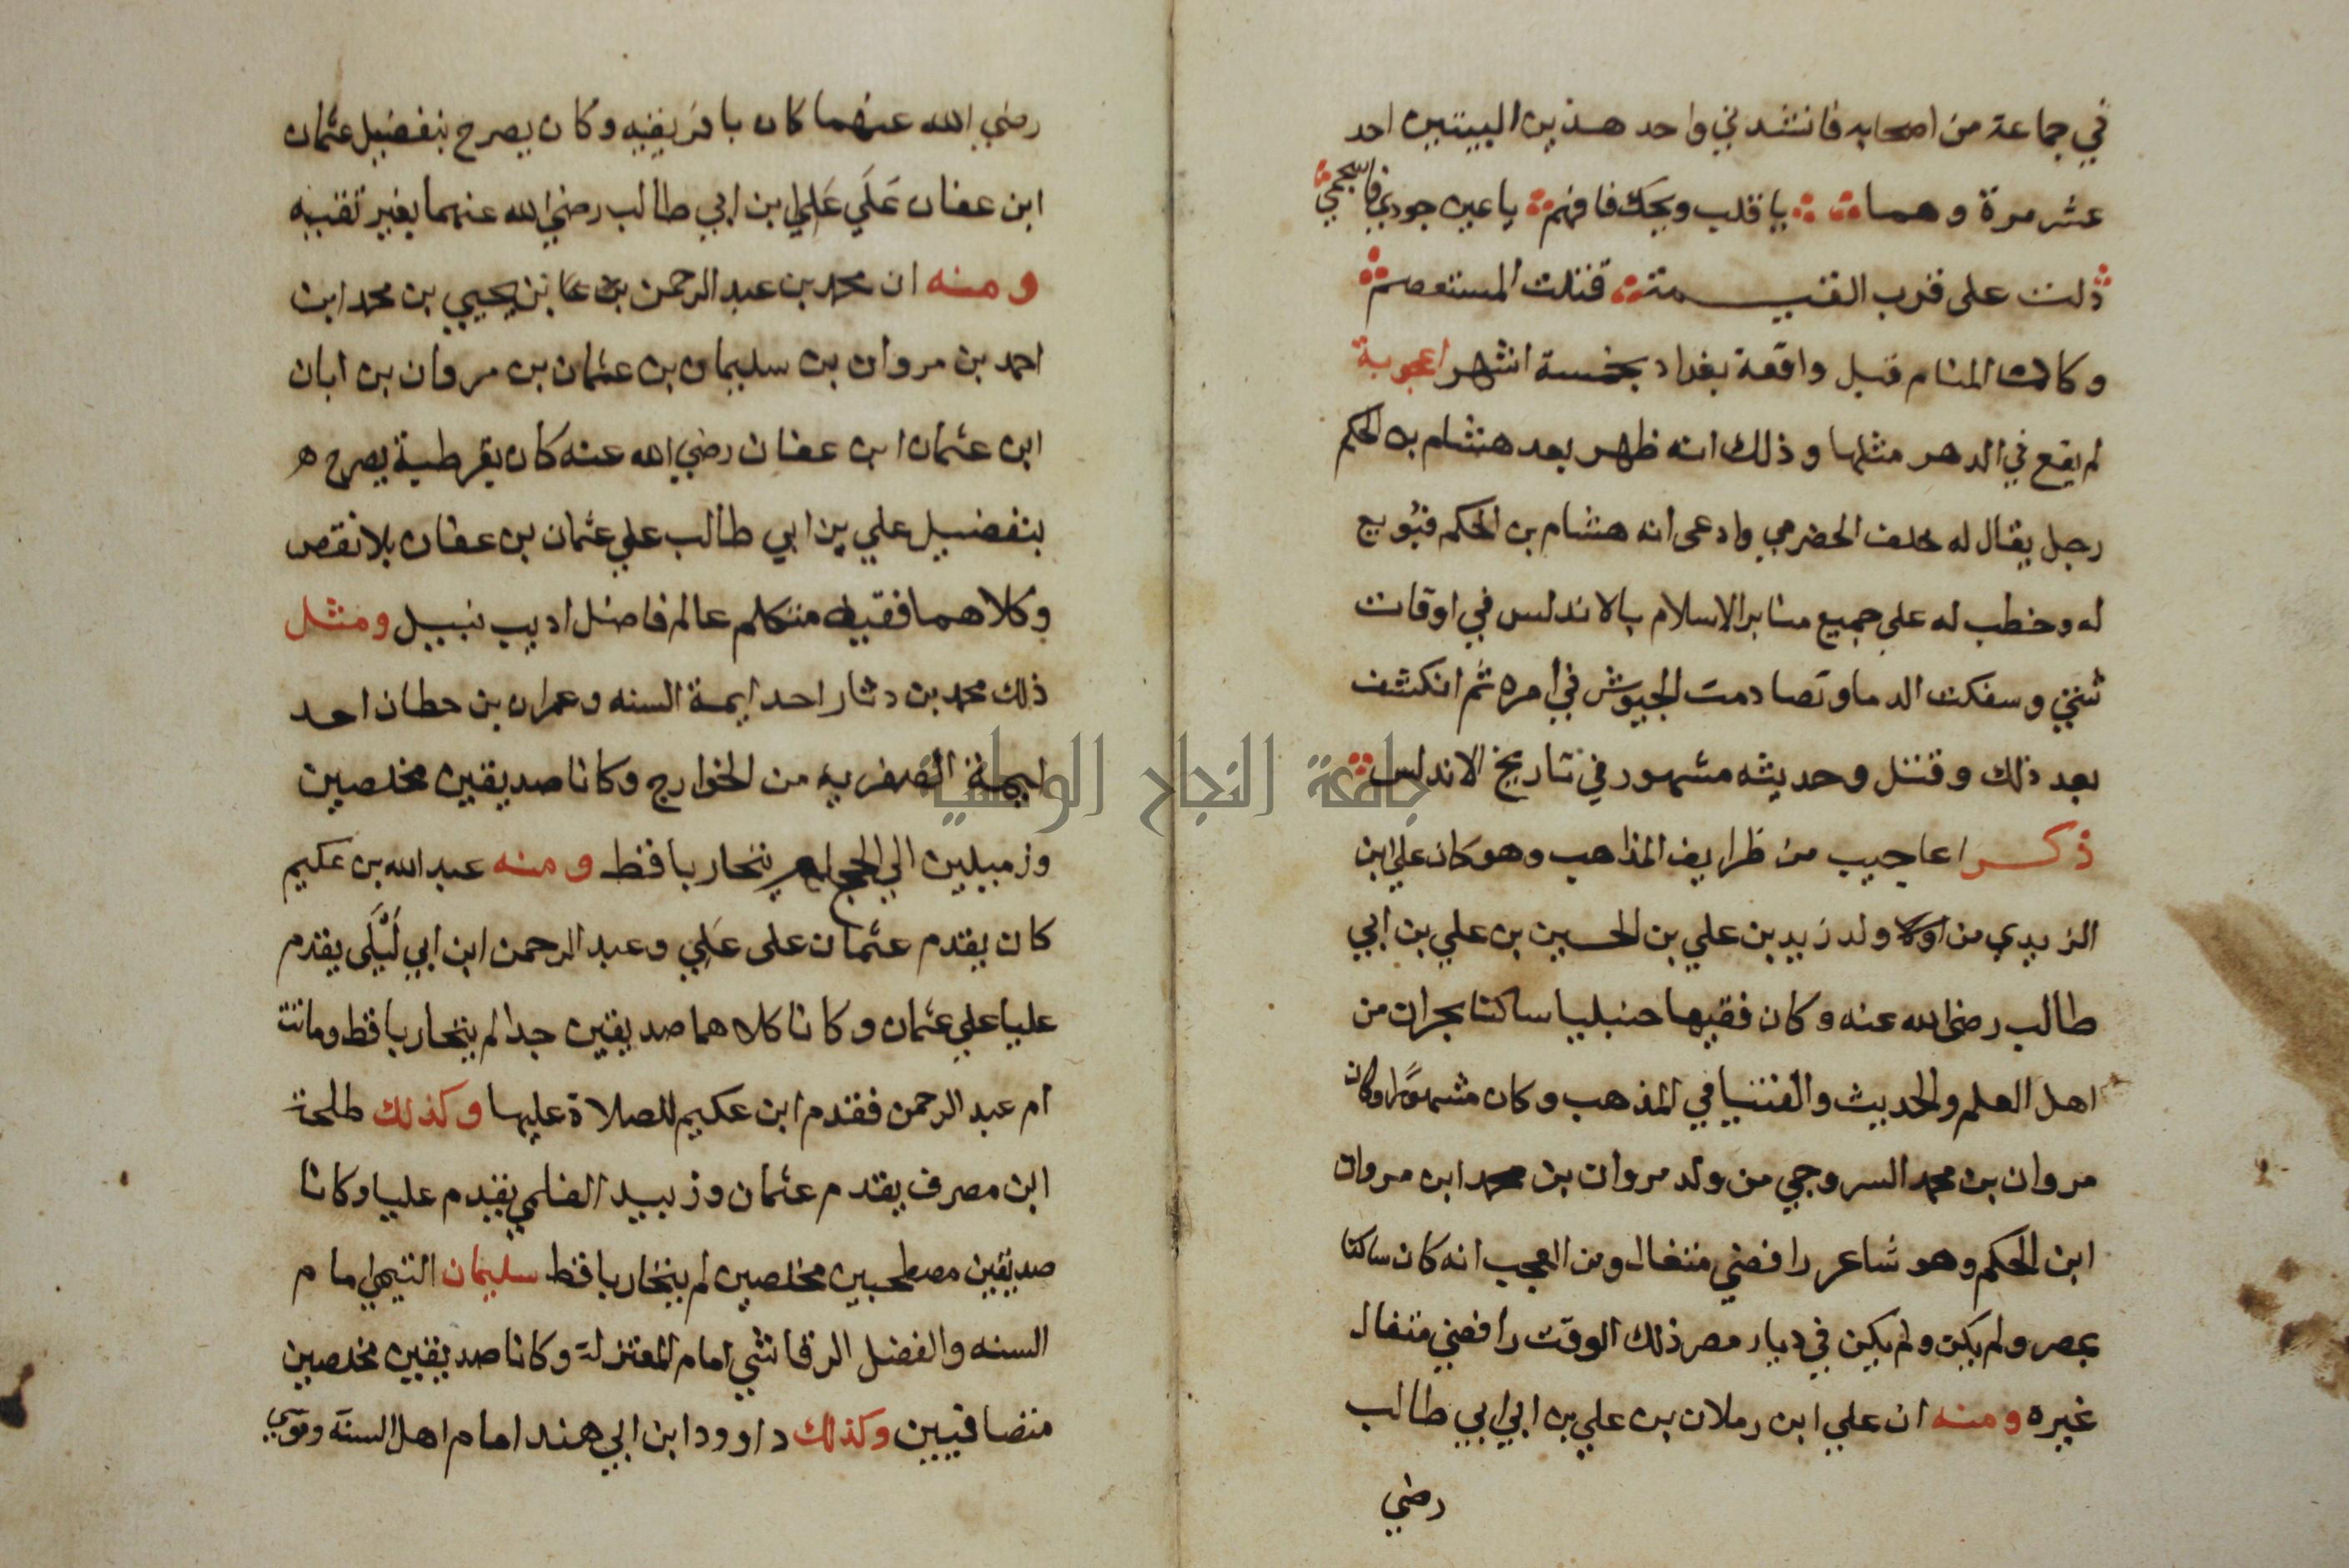 في جماعة من اصحابه فانشدني واحد هذين البيتين احد
عشر مرة وهما يا قلب ويحك فافهم يا عين جودي فاسجمي
ذلت على قرب القيمة قتلت المستعصم
وكانت المنام قبل واقعة بغداد بخمسة اشهر اعجوبة
لم يقع في الدهر مثلها وذلك انه ظهر بعد هشام بن الحكم
رجل يقال له خلف الحضرمي وادعى انه هشام بن الحكم فبُويع
له وخطب له على جميع منابر الاسلام بالاندلس في اوقات
شتي وسفكت الدما وتصادمت الجيوش في امره ثم انكشف
بعد ذلك وقتل وحديثه مشهور في تاريخ الاندلس
ذكر اعاجيب من ظرايف المذاهب وهو كان علي ابن
الزيدي من ولد زيد بن علي بن الحسين بن علي بن ابي
طالب رضى الله عنه وكان فقيها حنبليا ساكنا بحران من
اهل العلم والحديث والفتيا في المذهب وكان مشهورا وكان
مروان بن محمد السروجي من ولد مروان بن محمد ابن مروان
ابن الحكم وهو شاعر رافضي متغال ومن العجب انه كان ساكنا
بمصر ولم يكن ولم يكن في ديار مصر ذلك الوقت رافضي متغال
غيره ومنه ان علي ابن رملان بن علي بن ابي ابي طالب
رضي
رضي الله عنهما كان بافريقيه وكان يصرح بتفضيل عثمان
ابن عفان عَلَي عَلي بن ابي طالب رضي الله عنهما بغير تقيه
ومنه ان محمد بن عبد الرحمن بن يحيي بن محمد ابن
احمد بن مروان بن سليمان بن عثمان بن مروان بن ابان
ابن عثمان ابن عفان رضي الله عنه كان بقرطبة يصرح
بتفضيل علي بن ابي طالب علي عثمان بن عفان بلا نقص
وكلاهما فقيه متكلم عالم فاضل اديب نبيل ومثل
ذلك محمد بن دثار احد ايمة السنه وعمران بن حطان احد
ايمة الصفريه من الخوارج وكانا صديقين مخلصين
وزميلين الي الحج لم يتحاربا قط ومنه عبد الله بن عكيم
كان يقدم عثمان على عَلي وعبد الرحمن ابن ابي لَيْلَى يقدم
عليا علي عثمان وكانا كلاهما صديقين جدا لم يتحاربا قط وماتت
ام عبد الرحمن فقدم ابن عكيم للصلاة عليها وكذلك طلحة
ابن مصرف يقدم عثمان وزبيد يقدم عليا وكانا
صديقين مصطحبين مخلصين لم يتحاربا قط سليمان التيمي امام
السنه والفضل الرقاشي امام المعتزلة وكانا صديقين مخلصين
متصافيين وكذلك داوود ابن ابي هند امام اهل السنة وموسى
جامعة النجاح الوطنية